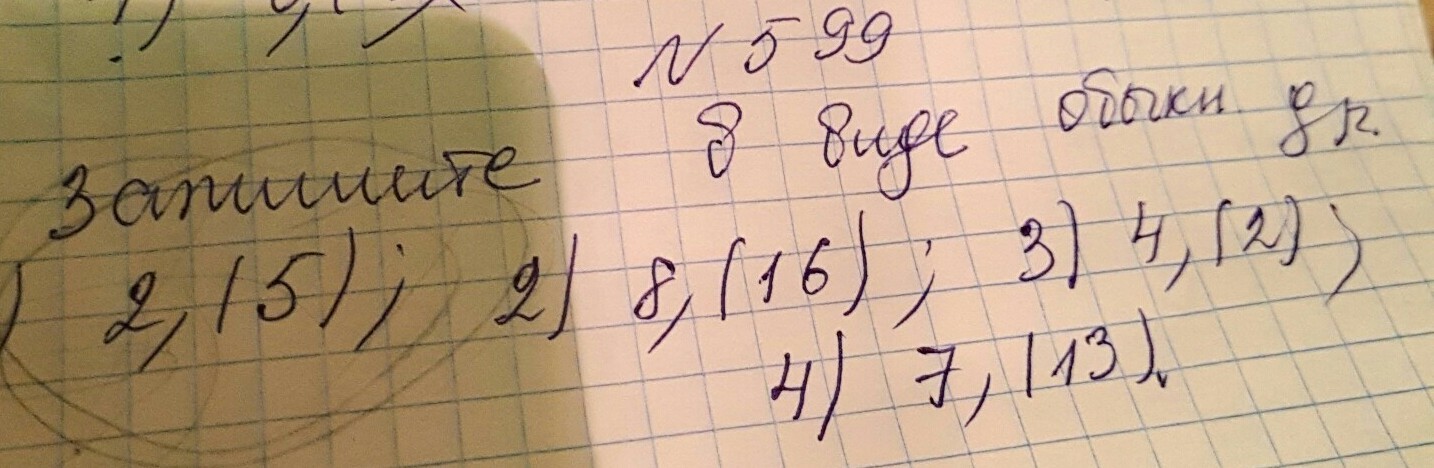 N 599
Запишите в виде обыкн др.
) 2,(5); 2) 8,(16); 3) 4,(2);
4) 7,(13).